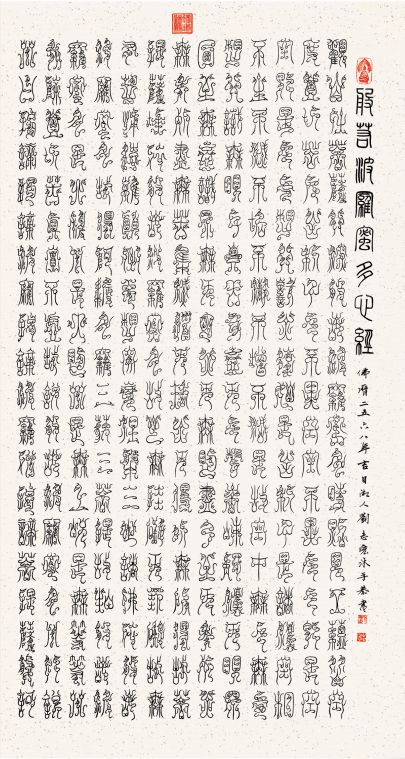 般若波羅蜜多心經
佛曆二五六八年吉日湘人劉志沐手恭書
觀自在菩薩行深般若波羅蜜多時照見五蘊皆空
度一切苦厄舍利子色不異空空不異色色即是空
空即是色受想行識亦復如是舍利子是諸法空相
不生不滅不垢不淨不增不減是故空中無色無受
想行識無眼耳鼻舌身意無色聲香味觸法無眼界
乃至無意識界無無明亦無無明盡乃至無老死亦
無老死盡無苦集滅道無智亦無得以無所得故菩
提薩埵依般若波羅蜜多故心無罣礙無罣礙故無
有恐怖遠離顛倒夢想究竟涅槃三世諸佛依般若
波羅蜜多故得阿耨多羅三藐三菩提故知般若波
羅蜜多是大神咒是大明咒是無上咒是無等等咒
能除一切苦真實不虛故說般若波羅蜜多咒即說
咒曰揭諦揭諦波羅揭諦波羅僧揭諦菩提薩婆訶